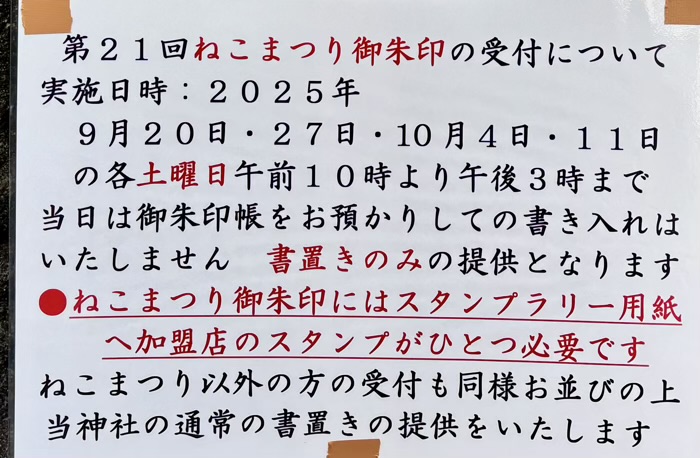 第２１回ねこまつり御朱印の受付について
実施日時：２０２５年
９月２０日・２７日・10月４日・１１日
の各土曜日午前１０時より午後３時まで
当日は御朱印帳をお預かりしての書き入れは
いたしません　書置きのみの提供となります
●ねこまつり御朱印にはスタンプラリー用紙
へ加盟店のスタンプがひとつ必要です
ねこまつり以外の方の受付も同様お並びの上
当神社の通常の書置きの提供をいたします